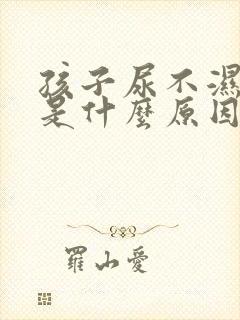 孩子尿不濕
是什麼原因
羅山愛